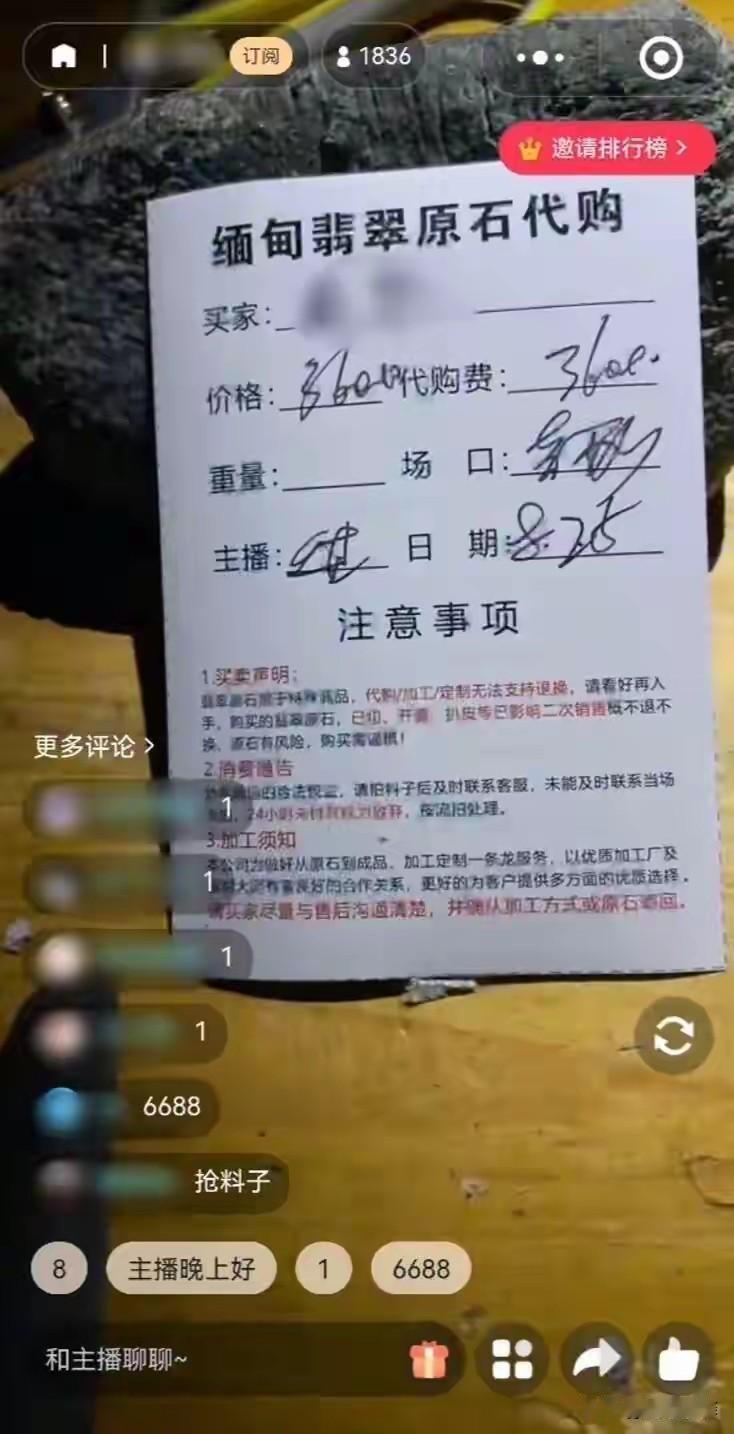 订阅
1836
邀请排行榜 >
缅甸翡翠原石代购
买家:
价格: 代购费:
重量: 场 口:
主播: 日 期: 8.25
注意事项
1.买卖声明:
代购/加工/定制无法支持退换，请看好再入
手，购买的翡翠原石，已切、开 扒皮等已影响二次销售概不退不
换，原石有风险，购买需谨慎!
2.消费通告
请拍料子后及时联系客服，未能及时联系当场
24小时未付
3.加工须知
本公司为做好从原石到成品，加工定制一条龙服务，以优质加工厂及
良好的合作关系，更好的为客户提供多方面的优质选择。
请买家尽量与售后沟通清楚，并确认加工方式或原石寄回。
更多评论 >
1
1
1
1
6688
抢料子
8 主播晚上好 1 6688
和主播聊聊~